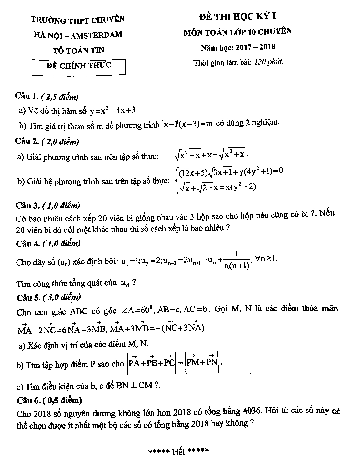 TRƯỜNG THPT CHUYÊN
HÀ NỘI - AMSTERDAM
TỔ TOÁN TIN
ĐỀ CHÍNH THỨC
ĐỀ THI HỌC KỲ I
MÔN TOÁN LỚP 10 CHUYÊN
Năm học: 2017 - 2018
Thời gian làm bài: 120 phút.
Câu 1. ( 2,5 điểm)
a) Vẽ đồ thị hàm số y = x² - 4x + 3
b) Tìm giá trị tham số m để phương trình |x-1|(x-3) = m có đúng 2 nghiệm.
Câu 2. ( 2,0 điểm)
a) Giải phương trình sau trên tập số thực:
b) Giải hệ phương trình sau trên tập số thực:
Câu 3. ( 1,0 điểm)
Có bao nhiêu cách xếp 20 viên bi giống nhau vào 3 hộp sao cho hộp nào cũng có bi ?. Nếu
20 viên bi đó đôi một khác nhau thì số cách xếp là bao nhiêu ?
Câu 4. ( 1,0 điểm)
Cho dãy số (uₙ) xác định bởi:
Tìm công thức tổng quát của uₙ ?
Câu 5. ( 3,0 điểm)
Cho tam giác ABC có góc ∠A = 60⁰, AB = c, AC = b. Gọi M, N là các điểm thỏa mãn
a) Xác định vị trí của các điểm M, N.
b) Tìm tập hợp điểm P sao cho |PA + PB + PC| = |PM + PN|.
c) Tìm điều kiện của b, c để BN ⊥ CM ?
Câu 6. ( 0,5 điểm)
Cho 2018 số nguyên dương không lớn hơn 2018 có tổng bằng 4036. Hỏi từ các số này có
thể chọn được ít nhất một bộ các số có tổng bằng 2018 hay không ?
***** Hết *****